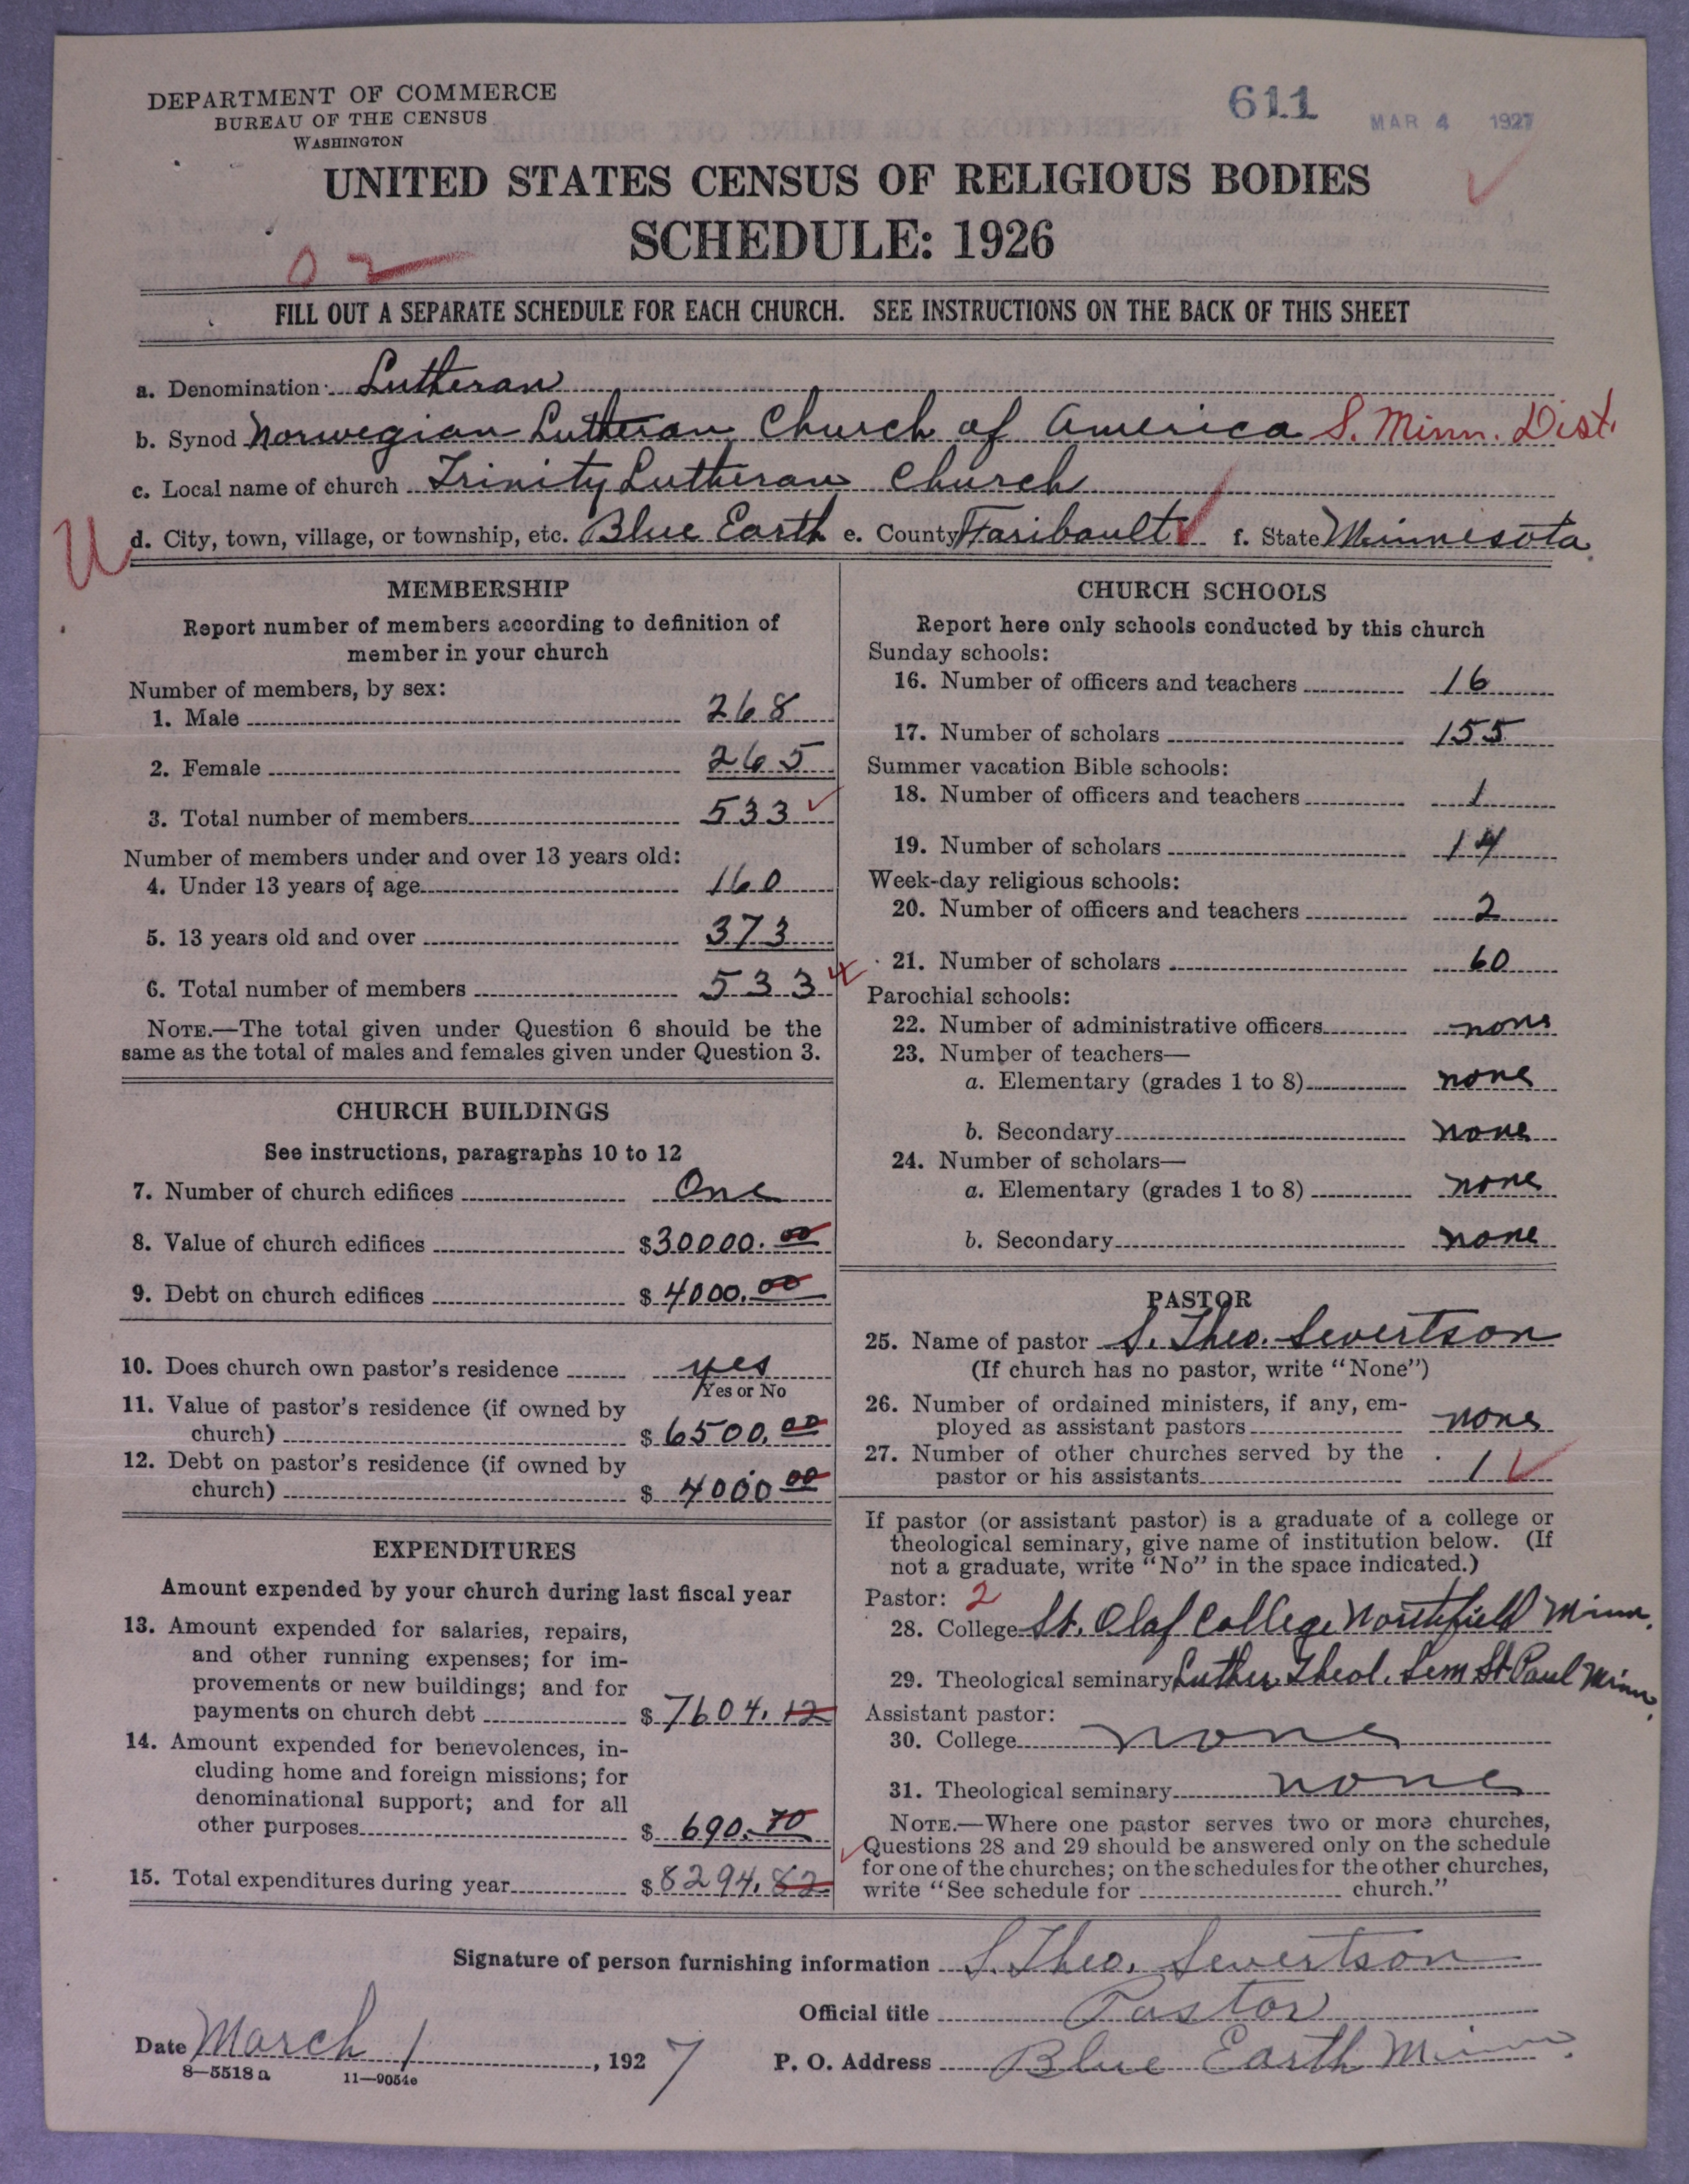 DEPARTMENT OF COMMERCE
BUREAU OF THE CENSUS
WASHINGTON
611
MAR 4 1927
UNITED STATES CENSUS OF RELIGIOUS BODIES
SCHEDULE: 1926
02
FILL OUT A SEPARATE SCHEDULE FOR EACH CHURCH. SEE INSTRUCTIONS ON THE BACK OF THIS SHEET
a. Denomination Lutheran
b. Synod Norwegian Lutheran Church of America S. Minn. Dist.
c. Local name of church Trinity Lutheran Church
U d. City, town, village, or township, etc. Blue Earth e. County Faribault f. State Minnesota.
MEMBERSHIP
Report number of members according to definition of
member in your church
Number of members, by sex:
1. Male 268
2. Female 265
3. Total number of members 533
Number of members under and over 13 years old:
4. Under 13 years of age 160
5. 13 years old and over 373
6. Total number of members 533
NOTE.—The total given under Question 6 should be the
same as the total of males and females given under Question 3.
CHURCH BUILDINGS
See instructions, paragraphs 10 to 12
7. Number of church edifices One
8. Value of church edifices $30000.00
9. Debt on church edifices $4000.00
10. Does church own pastor's residence yes
Yes or No
11. Value of pastor's residence (if owned by
church) $6500.00
12. Debt on pastor's residence (if owned by
church) $4000 00
EXPENDITURES
Amount expended by your church during last fiscal year
13. Amount expended for salaries, repairs,
and other running expenses; for im-
provements or new buildings; and for
payments on church debt $7604.12
14. Amount expended for benevolences, in-
cluding home and foreign missions; for
denominational support; and for all
other purposes $690.70
15. Total expenditures during year $8294.82
CHURCH SCHOOLS
Report here only schools conducted by this church
Sunday schools:
16. Number of officers and teachers 16
17. Number of scholars 155
Summer vacation Bible schools:
18. Number of officers and teachers 1
19. Number of scholars 14
Week-day religious schools:
20. Number of officers and teachers 2
21. Number of scholars 60
Parochial schools:
22. Number of administrative officers none
23. Number of teachers—
a. Elementary (grades 1 to 8) none
b. Secondary none
24. Number of scholars—
a. Elementary (grades 1 to 8) none
b. Secondary none
PASTOR
25. Name of pastor S. Theo. Severtson
(If church has no pastor, write "None")
26. Number of ordained ministers, if any, em-
ployed as assistant pastors none
27. Number of other churches served by the
pastor or his assistants 1
If pastor (or assistant pastor) is a graduate of a college or
theological seminary, give name of institution below. (If
not a graduate, write "No" in the space indicated.)
Pastor: 2
28. College St. Olaf College Northfield Minn.
29. Theological seminary Luther Theol. Sem St. Paul Minn.
Assistant pastor:
30. College none
31. Theological seminary none
NOTE.—Where one pastor serves two or more churches,
Questions 28 and 29 should be answered only on the schedule
for one of the churches; on the schedules for the other churches,
write "See schedule for church."
Signature of person furnishing information S. Theo. Severtson
Official title Pastor
Date March 1, 1927
P. O. Address Blue Earth Minn.
8—5518a 11—9054e